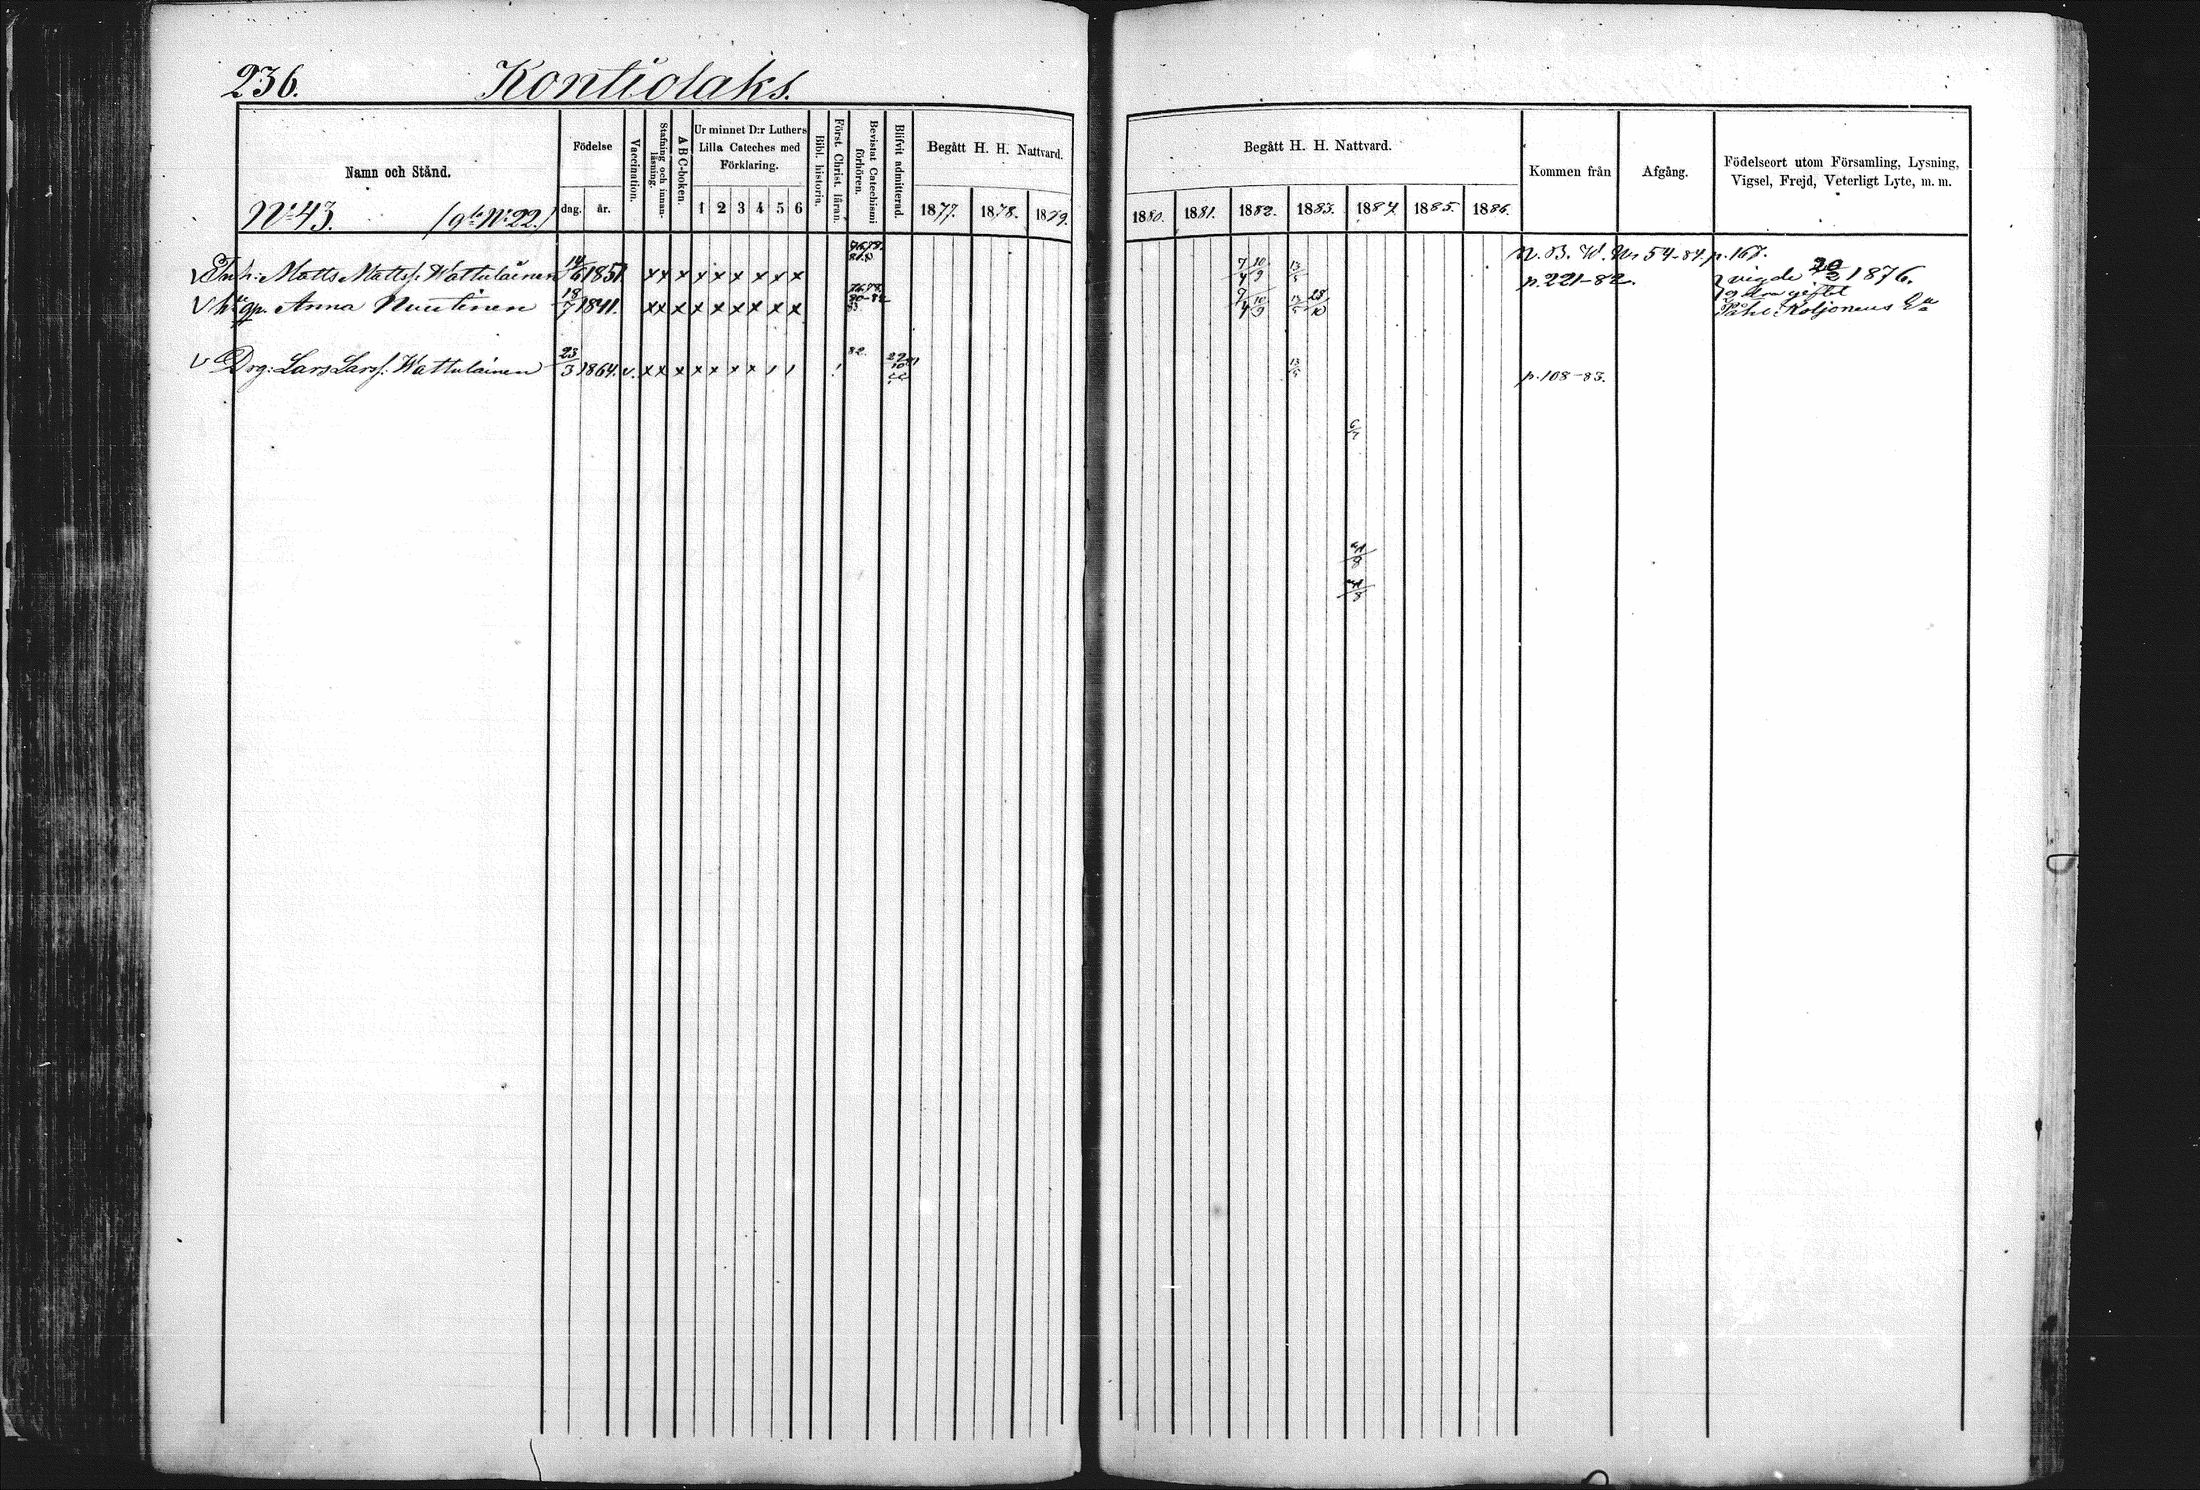 236. Kontiolaks.
Namn och Stånd.
Födelse
dag. år.
Vaccination.
Stafning och innanläsning.
A B C-boken.
Ur minnet D:r Luthers
Lilla Cateches med
Förklaring.
1 2 3 4 5 6
Bibl. historia.
Först. Christ. läran.
Bevistat Catechismi förhören.
Blifvit admitterad.
Begått H. H. Nattvard.
1877. 1878. 1879.
Begått H. H. Nattvard.
1880. 1881. 1882. 1883. 1884. 1885. 1886.
Kommen från
Afgång.
Födelseort utom Församling, Lysning,
Vigsel, Frejd, Veterligt Lyte, m. m.
No 43. (gl No 22.)
Inh: Matts Mattsf: Wattulainen 14/6 1851. x x x x x x x x x 7/4 10/9 13/5 N. B. W. Nr 54-84 p. 167.
p. 221-82. vigde 20/2 1876.
v h:u gp. Anna Nuutinen 18/7 1841. x x x x x x x x x 7/4 10/9 13/5 28/10 g. dra giftet
Påhl Koljonens Ea
v Drg: Lars Larsf: Wattulainen 23/3 1864. v. x x x x x x x 82. 13/5 p. 108-83.
6/7
31/8
31/8